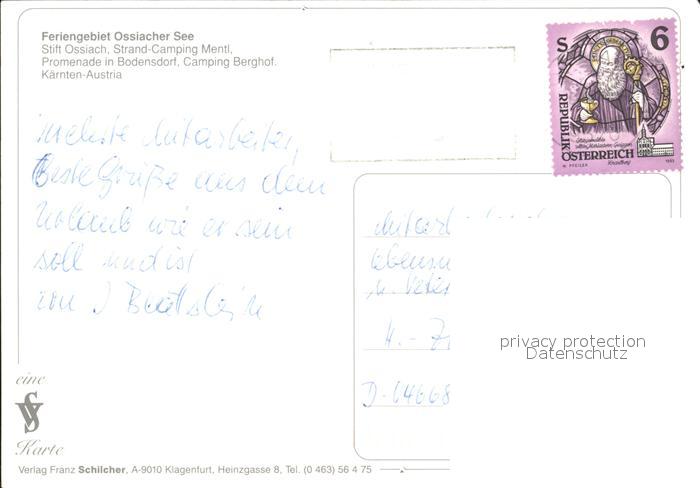 Feriengebiet Ossiacher See
Stift Ossiach, Strand-Camping Mentl,
Promenade in Bodensdorf, Camping Berghof.
Kärnten-Austria
S 6
REPUBLIK
ÖSTERREICH
Mitarbeiter,
Beste Grüße aus dem
Urlaub wie er sein
soll und ist
von J
D-64668
privacy protection
Datenschutz
eine
Karte
Verlag Franz Schilcher, A-9010 Klagenfurt, Heinzgasse 8, Tel. (0 463) 56 4 75